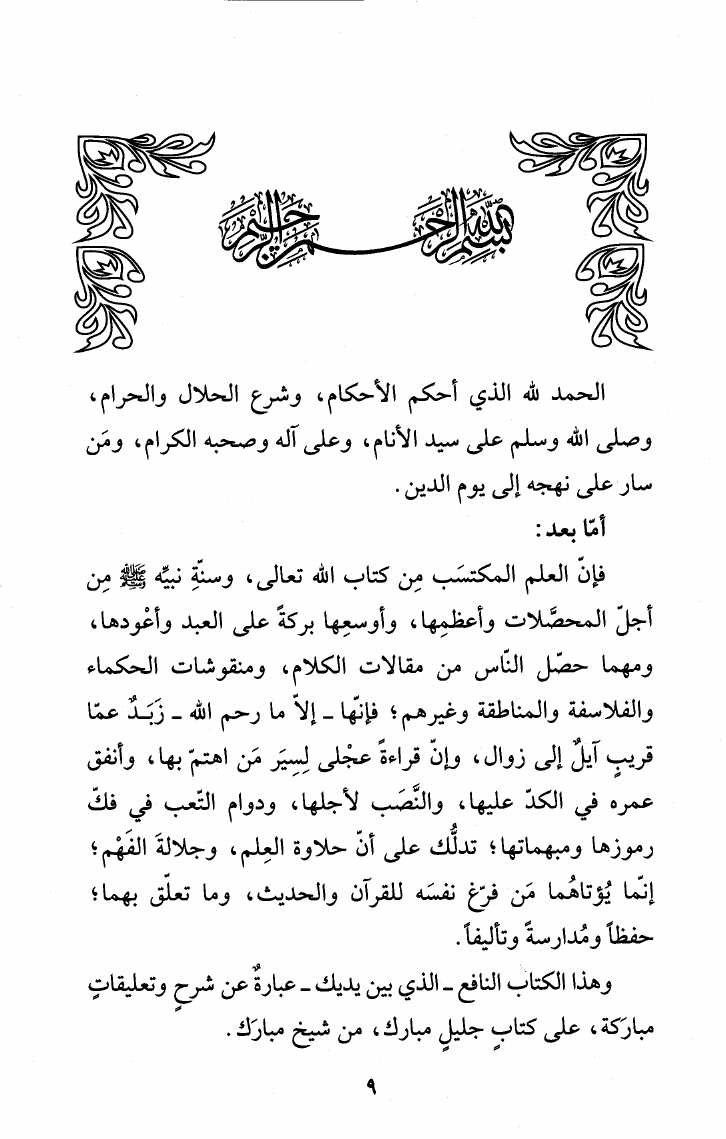 بسم الله الرحمن الرحيم
الحمد لله الذي أحكم الأحكام، وشرع الحلال والحرام،
وصلى الله وسلم على سيد الأنام، وعلى آله وصحبه الكرام، ومَن
سار على نهجه إلى يوم الدين.
أمّا بعد:
فإنّ العلم المكتسَب مِن كتاب الله تعالى، وسنّةِ نبيِّه ﷺ مِن
أجلّ المحصَّلات وأعظمِها، وأوسعِها بركةً على العبد وأعْودها،
ومهما حصّل النّاس من مقالات الكلام، ومنقوشات الحكماء
والفلاسفة والمناطقة وغيرهم؛ فإنّها ـ إلاّ ما رحم الله ـ زبَـدٌ عمّا
قريبٍ آيلٌ إلى زوال، وإنّ قراءةً عجْلى لِسِيَر مَن اهتمّ بها، وأنفق
عمره في الكدّ عليها، والنَّصَب لأجلها، ودوام التّعب في فكّ
رموزها ومبهماتها؛ تدلُّك على أنّ حلاوة العِلم، وجلالةَ الفَهْم؛
إنّما يُؤتاهُما مَن فرّغ نفسَه للقرآن والحديث، وما تعلّق بهما؛
حفظاً ومُدارسةً وتأليفاً.
وهذا الكتاب النافع ـ الذي بين يديك ـ عبارةٌ عن شرحٍ وتعليقاتٍ
مباركة، على كتابٍ جليلٍ مبارك، من شيخ مبارَك.
٩